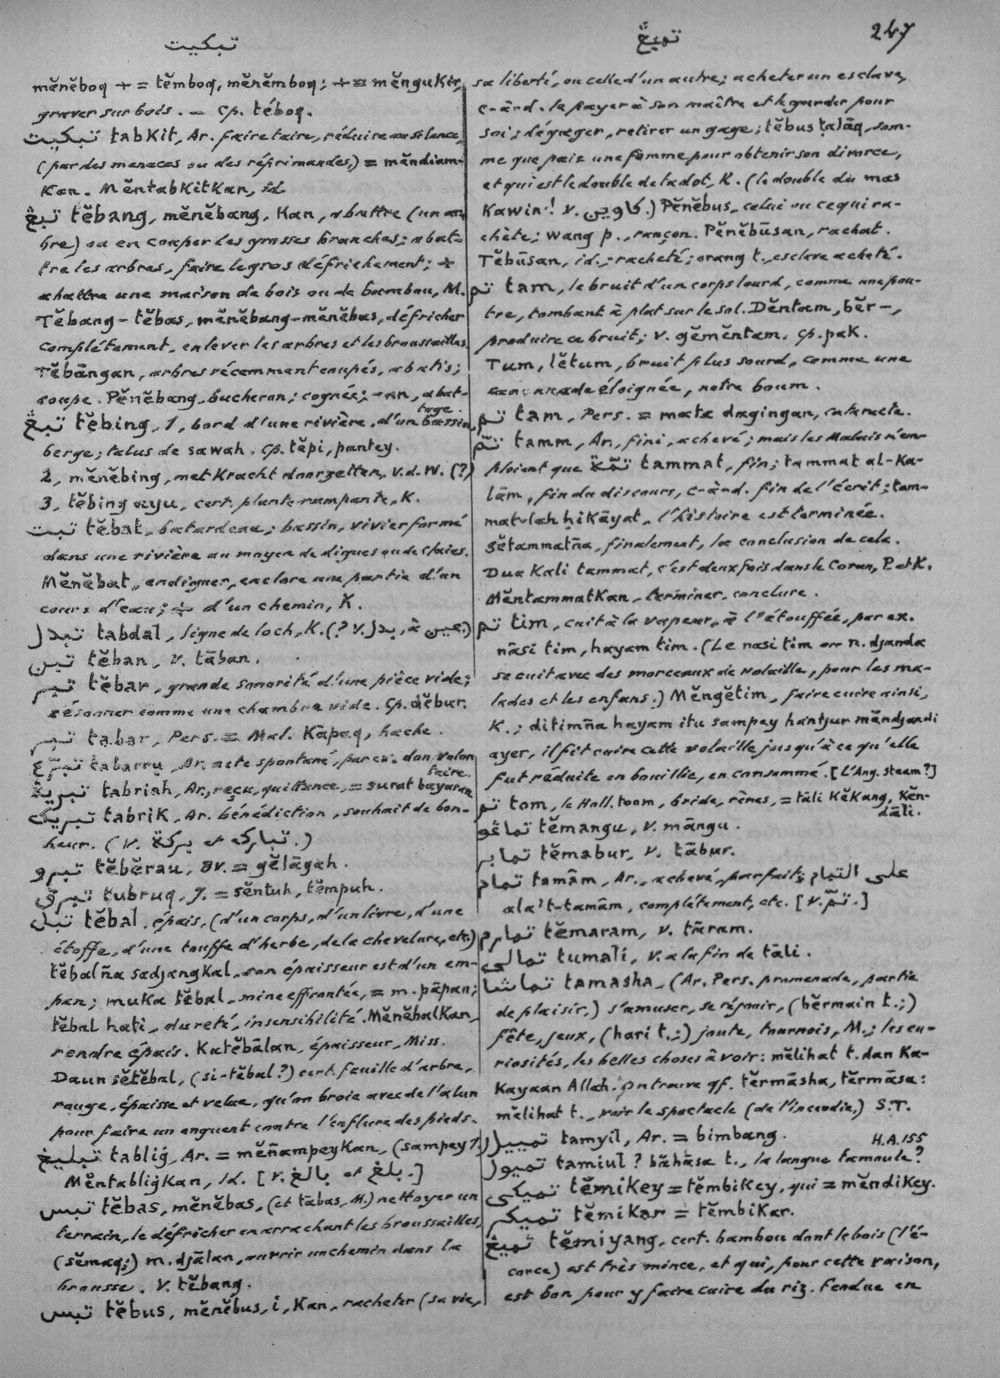 تبكيت
تميڠ
247
mĕnĕboq += tĕmboq, mĕnĕmboq; += mĕngukir,
graver sur bois. — Cp. téboq.
تبكيت tabkit, Ar. faire taire, réduire au silence
(par des menaces ou des réprimandes,) = mĕndiam-
kan. Mĕntabkitkan, id.
تبڠ tĕbang, mĕnĕbang, kan, abattre (un ar-
bre) ou en couper les grosses branches; abat-
tre les arbres, faire le gros défrichement; +
abattre une maison de bois ou de bambou, M.
Tĕbang-tĕbas, mĕnĕbang-mĕnĕbas, défricher
complétement, enlever les arbres et les broussailles.
Tĕbāngan, arbres récemment coupés, abatis;
coupe. Pĕnĕbang, bucheron; cognée; -an, abat-
tage.
تبڠ tĕbing, 1, bord d'une rivière, d'un bassin,
berge; talus de sawah. Cp. tĕpi, pantey.
2, mĕnĕbing, met kracht doorzetten, v.d.W. (?)
3, tĕbing ayu, cert. plante rampante, K.
تبت tĕbat, batardeau; bassin, vivier formé
dans une rivière au moyen de digues ou de claies.
Mĕnĕbat, endiguer, enclore une partie d'un
cours d'eau; + d'un chemin, K.
تبدل tabdal, ligne de loch, K. (? v. بدل, à عين.)
تبن tĕban, v. tāban.
تبر tĕbar, grande sonorité d'une pièce vide;
résonner comme une chambre vide. Cp. dĕbur.
تبر tabar, Pers. = Mal. Kāpaq, hache.
تبرّع tabarru, Ar. acte spontané, par ex. don volon
taire.
تبرية tabriah, Ar., reçu, quittance, = surat bayaran
تبريك tabrik, Ar. bénédiction, souhait de bon-
heur. (v. بركة et تباركه.)
تبرو tĕbĕrau, Bv. = gĕlāgah.
تبرق tubruq, J. = sĕntuh, tĕmpuh.
تبل tĕbal, épais, (d'un corps, d'un livre, d'une
étoffe, d'une touffe d'herbe, de la chevelure, etc.)
tĕbalña sadjangkal, son épaisseur est d'un em-
pan; muka tĕbal, mine effrontée, = m. pāpan;
tĕbal hati, dureté, insensibilité. Mĕnĕbalkan,
rendre épais. Katĕbālan, épaisseur, Miss.
Daun sĕtĕbal, (si-tĕbal?) cert. feuille d'arbre,
rouge, épaisse et velue, qu'on broie avec de l'alun
pour faire un onguent contre l'enflure des pieds.
تبليغ tabligh, Ar. = mĕñampeykan, (sampey.)
Mĕntablighkan, id. [v. بالغ et بلغ.]
تبس tĕbas, mĕnĕbas, (et tābas, M.) nettoyer un
terrain, le défricher en arrachant les broussailles,
(sĕmaq;) m. djālan, ouvrir un chemin dans la
brousse. v. tĕbang.
تبس tĕbus, mĕnĕbus, i, kan, racheter (sa vie,
sa liberté, ou celle d'un autre; acheter un esclave,
c-à-d. le payer à son maître et le garder pour
soi; dégager, retirer un gage; tĕbus ṭalāq, som-
me que paie une femme pour obtenir son divorce,
et qui est le double de la dot, K. (le double du mas
kawin! v. كاوين.) Pĕnĕbus, celui ou ce qui ra-
chète; wang p., rançon. Pĕnĕbūsan, rachat.
Tĕbūsan, id.; racheté; orang t., esclave acheté.
تم tam, le bruit d'un corps lourd, comme une pou-
tre, tombant à plat sur le sol. Dĕntam, bĕr-,
produire ce bruit; v. gĕmĕntam. Cp. pak.
Tum, lĕtum, bruit plus sourd, comme une
canonnade éloignée, notre boum.
تم tam, Pers. = mata dagingan, cataracte.
تمّ tamm, Ar. fini, achevé; mais les Malais n'em-
ploient que تمّة tammat, fin; tammat al-ka-
lām, fin du discours, c-à-d. fin de l'écrit; tam-
mat-lah ḥikāyat, l'histoire est terminée.
Sĕtammatña, finalement, la conclusion de cela.
Dua kali tammat, c'est deux fois dans le Coran, P. et K.
Mĕntammatkan, terminer, conclure.
تم tim, cuit à la vapeur, à l'étouffée, par ex.
nāsi tim, hayam tim. (Le nasi tim ou n. djanda
se cuit avec des morceaux de volaille, pour les ma-
lades et les enfans.) Mĕngĕtim, faire cuire ainsi,
K.; ditimña hayam itu sampey hantjur mĕndjandi
ayer, il fit cuire cette volaille jusqu'à ce qu'elle
fut réduite en bouillie, en consommé. [L'Ang. steam?]
تم tom, le Holl. toom, bride, rênes, = tāli kĕkang, kĕn-
dāli.
تماڠو tĕmangu, v. māngu.
تمابر tĕmabur, v. tābur.
تمام tamām, Ar., achevé, parfait; على التمام
ala't-tamām, complétement, etc. [v. تمّ.]
تمارم tĕmaram, v. tāram.
تمالي tumali, v. à la fin de tāli.
تماشا tamasha, (Ar. Pers. promenade, partie
de plaisir,) s'amuser, se réjouir, (bĕrmain t.;)
fête, jeux, (hari t.;) joute, tournois, M.; les cu-
riosités, les belles choses à voir: mĕlihat t. dan ka-
kayaan Allah. On trouve qf. tĕrmāsha, tĕrmāsa:
mĕlihat t., voir le spectacle (de l'incendie,) S.T.
تمييل tamyil, Ar. = bimbang.
H.A.155
تميول tamiul? bāhāsa t., la langue tamoule?
تميكي tĕmikey = tĕmbikey, qui = mĕndikey.
تميكر tĕmikar = tĕmbikar.
تميڠ tĕmiyang, cert. bambou dont le bois (l'é-
corce) est très mince, et qui, pour cette raison,
est bon pour y faire cuire du riz. Fendue en